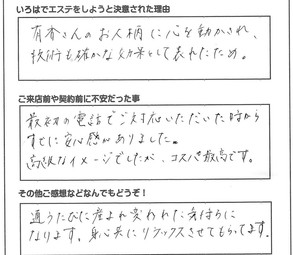 いろはでエステをしようと決意された理由
有香さんのお人柄に心を動かされ、
技術も確かな効果として表れたため。
ご来店前や契約前に不安だった事
最初の電話でご対応いただいた時から
すでに安心感がありました。
高級なイメージでしたが、コスパ最高です。
その他ご感想などなんでもどうぞ!
通うたびに産まれ変われた気持ちに
なります。身心共にリラックスさせてもらってます。